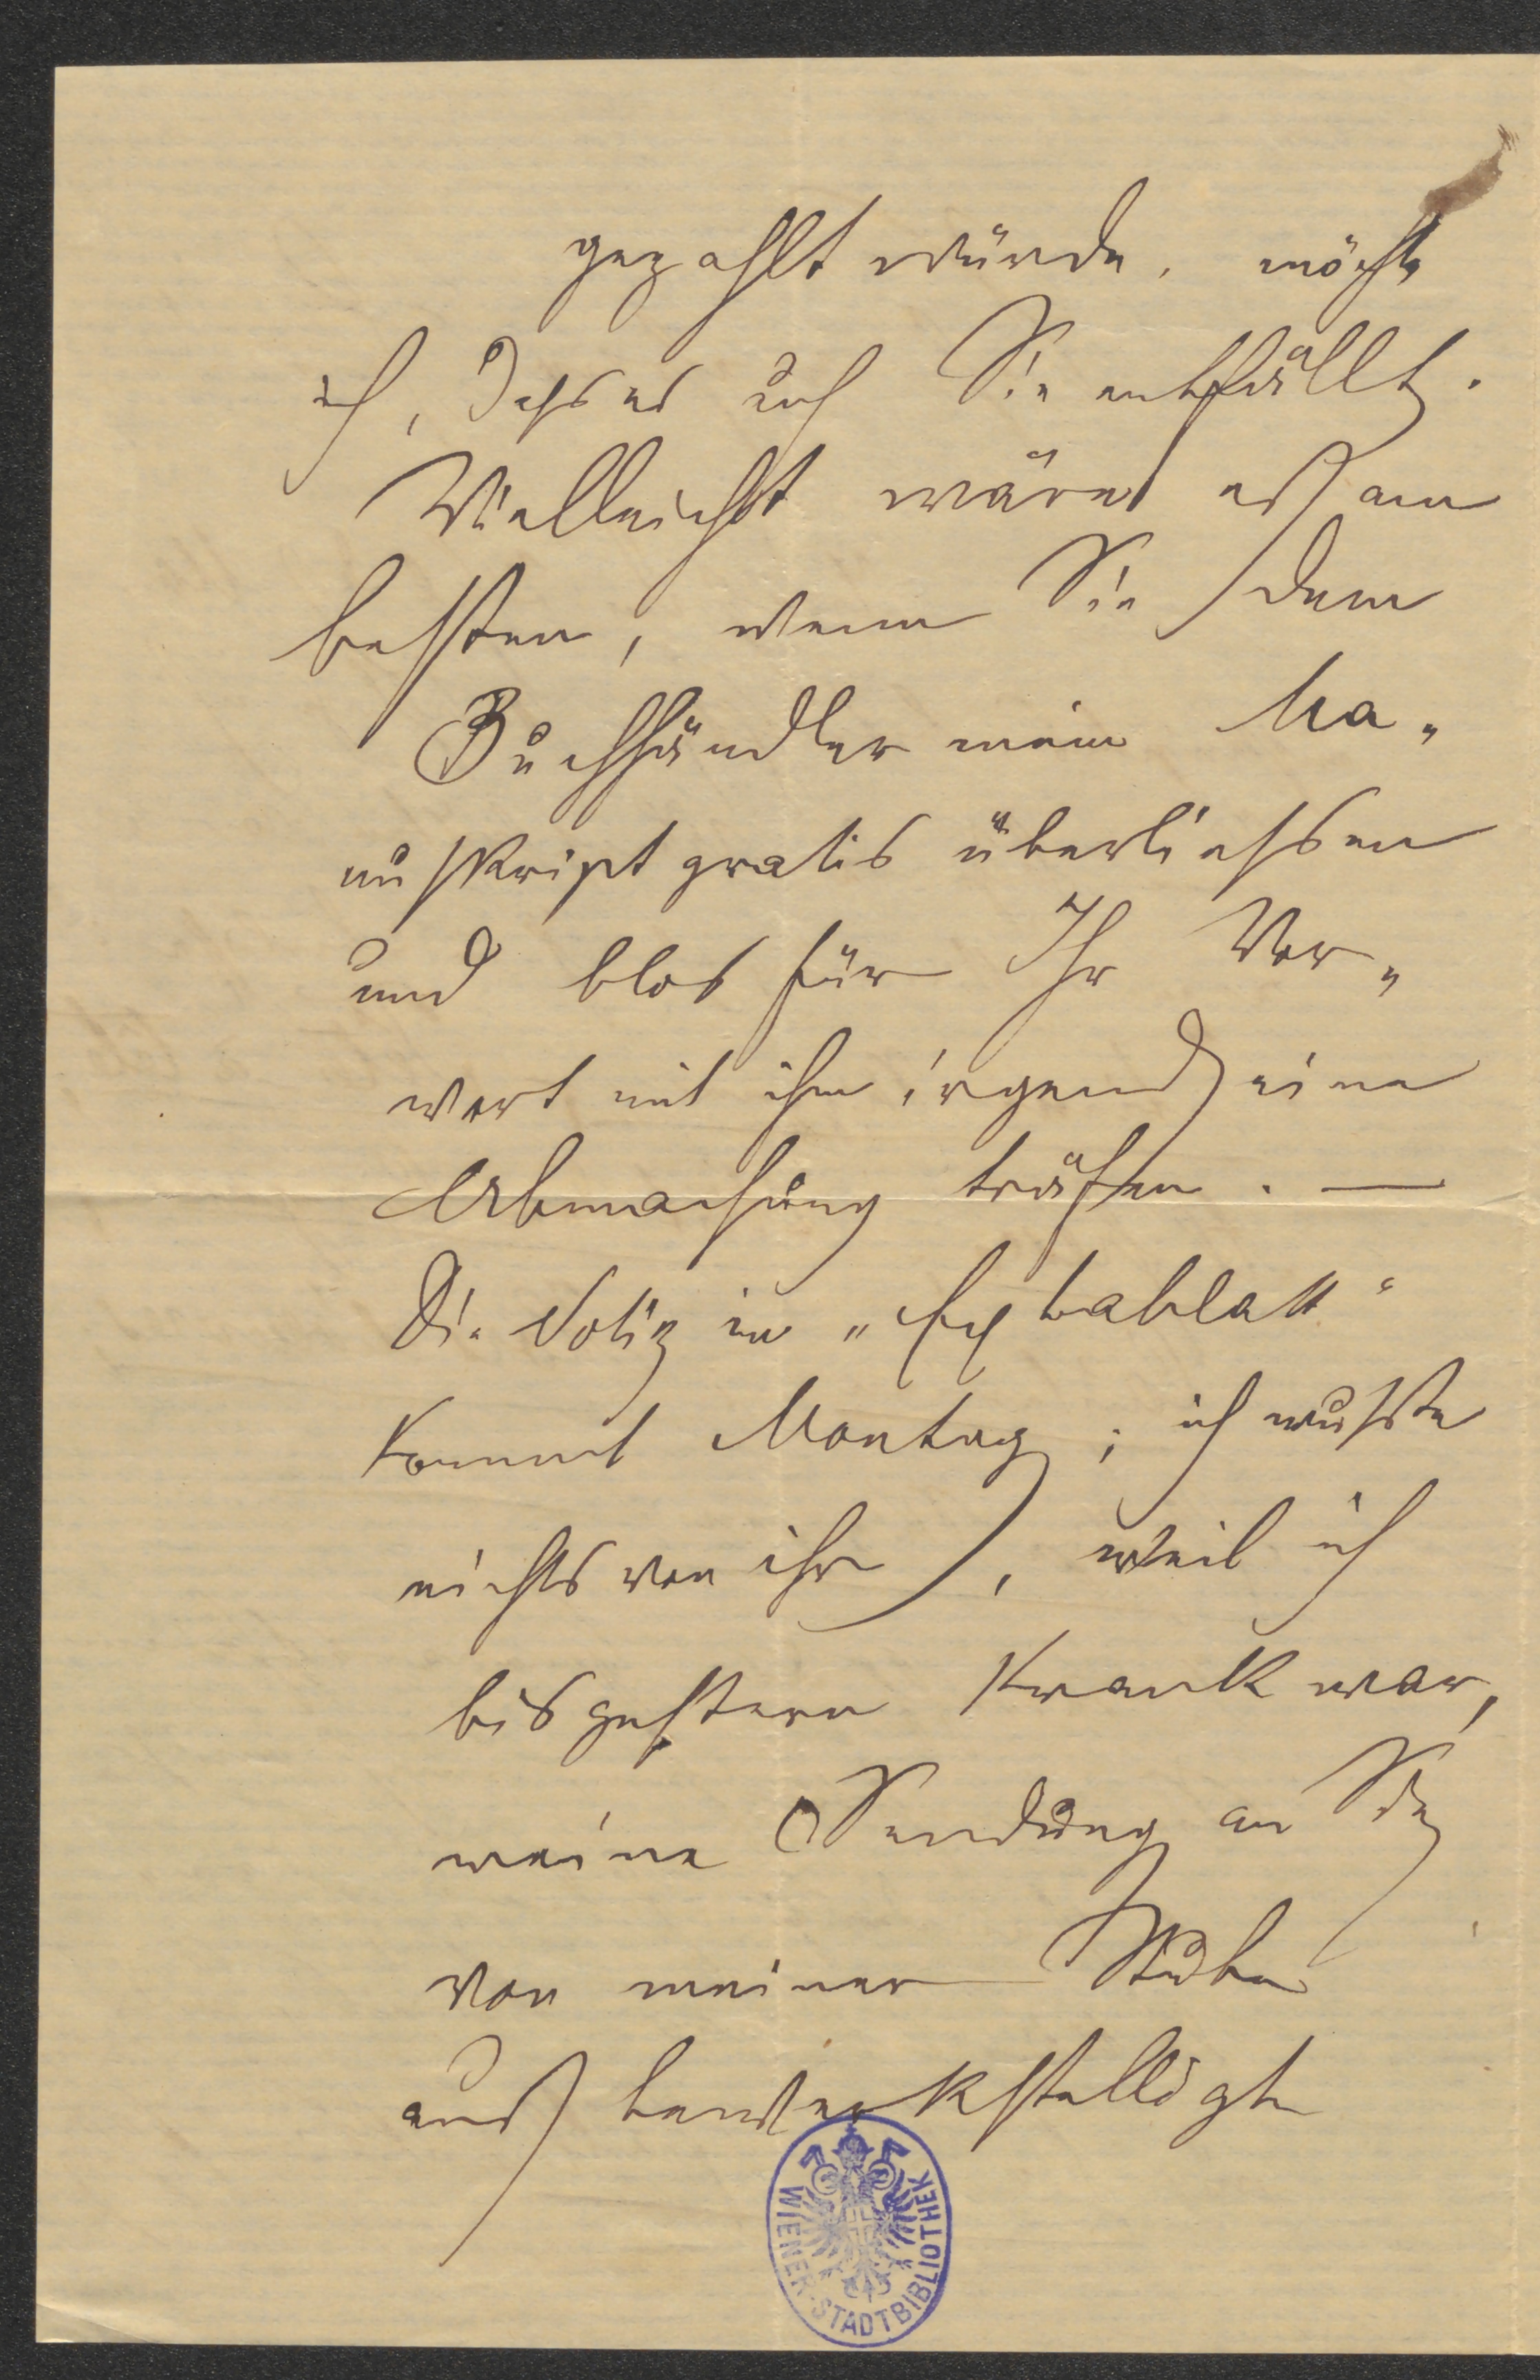 gezahlt würde, möchte
ich, dass es auf Sie entfällt.
Vielleicht wäre es am
besten, wenn Sie dem
Buchhändler mein Ma„
nuskript gratis überliessen
und blos für Ihr Vor„
wort mit ihm irgend eine
Abmachung träfen. —
Die Notiz im „Extrablatt“
kommt Montag; ich wusste
nichts von ihr, weil ich
bis gestern krank war,
meine Sendung an Sie
von meiner Stube
aus bewerkstelligte
WIENER STADTBIBLIOTHEK